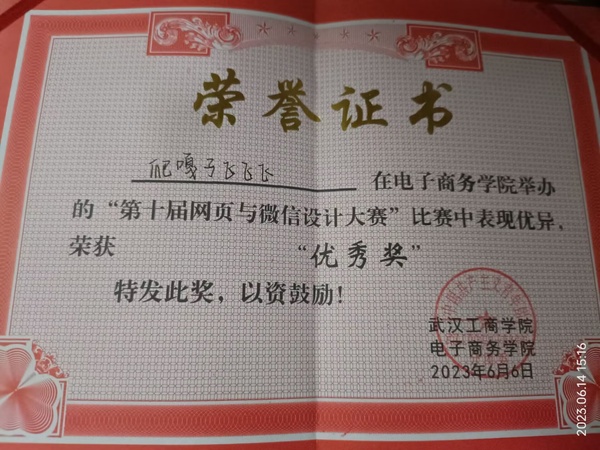 荣誉证书
嘎子飞飞飞
在电子商务学院举办
的“第十届网页与微信设计大赛”比赛中表现优异,
荣获 “优秀奖”
特发此奖，以资鼓励！
武汉工商学院
电子商务学院
2023年6月6日
2023.06.14 15:16